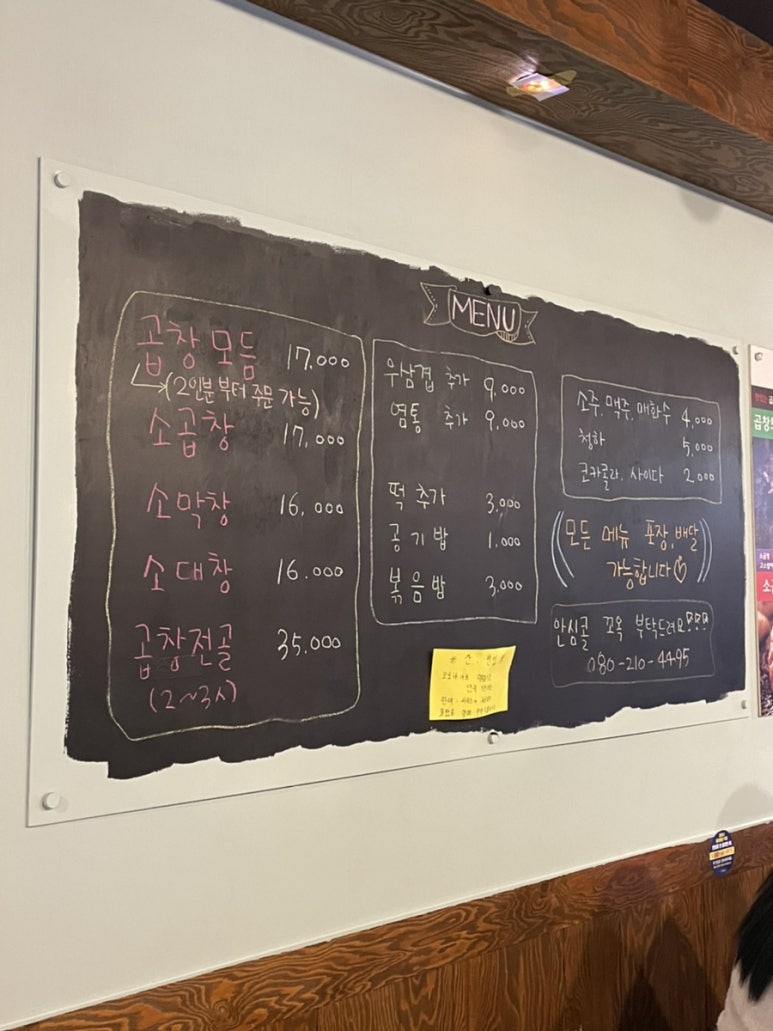 MENU
곱창모듬 17,000
(2인분부터 주문 가능)
소곱창 17,000
소막창 16,000
소대창 16.000
곱창전골 35.000
(2~3人)
우삼겹 추가 9,000
염통 추가 9,000
떡 추가 3,000
공기밥 1,000
볶음밥 3,000
소주, 맥주, 매화수 4,000
청하 5,000
코카콜라, 사이다 2.000
모든 메뉴 포장, 배달
가능합니다
안심콜 꼬옥 부탁드려요
080-210-4495